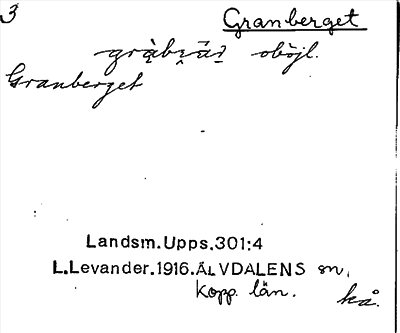 3
Granberget
obøjl.
Granberget
Landsm.Upps.301:4
L.Levander.1916.ÄLVDALENS sn.
Kopp. län.
kå.